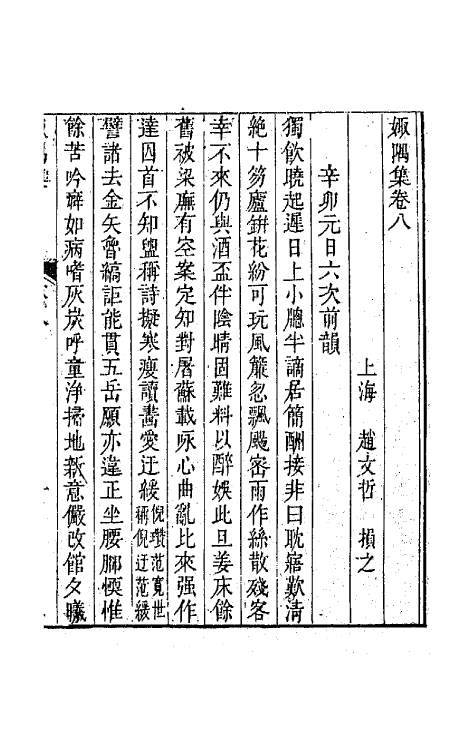 娵隅集卷八
上海　趙文哲　損之
辛卯元日六次前韻
獨飲曉起遲日上小牕半謫居簡酬接非曰耽寤歎淸
絶十笏廬缾花紛可玩風簾忽飄颺密雨作絲散殘客
幸不來仍與酒盃伴陰晴固難料以醉娛此旦姜床餘
舊被梁廡有空案定知對屠蘇載咏心曲亂比來强作
達囚首不知盥稱詩擬寒瘦讀畵愛迂緩倪瓚范寛世稱倪迂范緩
譬諸去金矢魯縞詎能貫五岳願亦違正坐腰腳愞惟
餘苦吟癖如病嗜灰炭呼童淨掃地新意儼改館夕曦